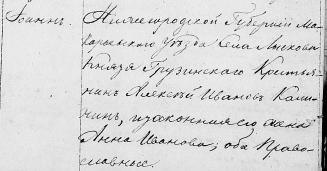 Іоаннъ. Нижегородской Губерніи Ма-
карьевскаго Уѣзда Села Лыскова
Князя Грузинскаго Крестья-
нинъ Алексѣй Ивановъ Кали-
нинъ, и законная его жена
Анна Иванова; оба Право-
славные.